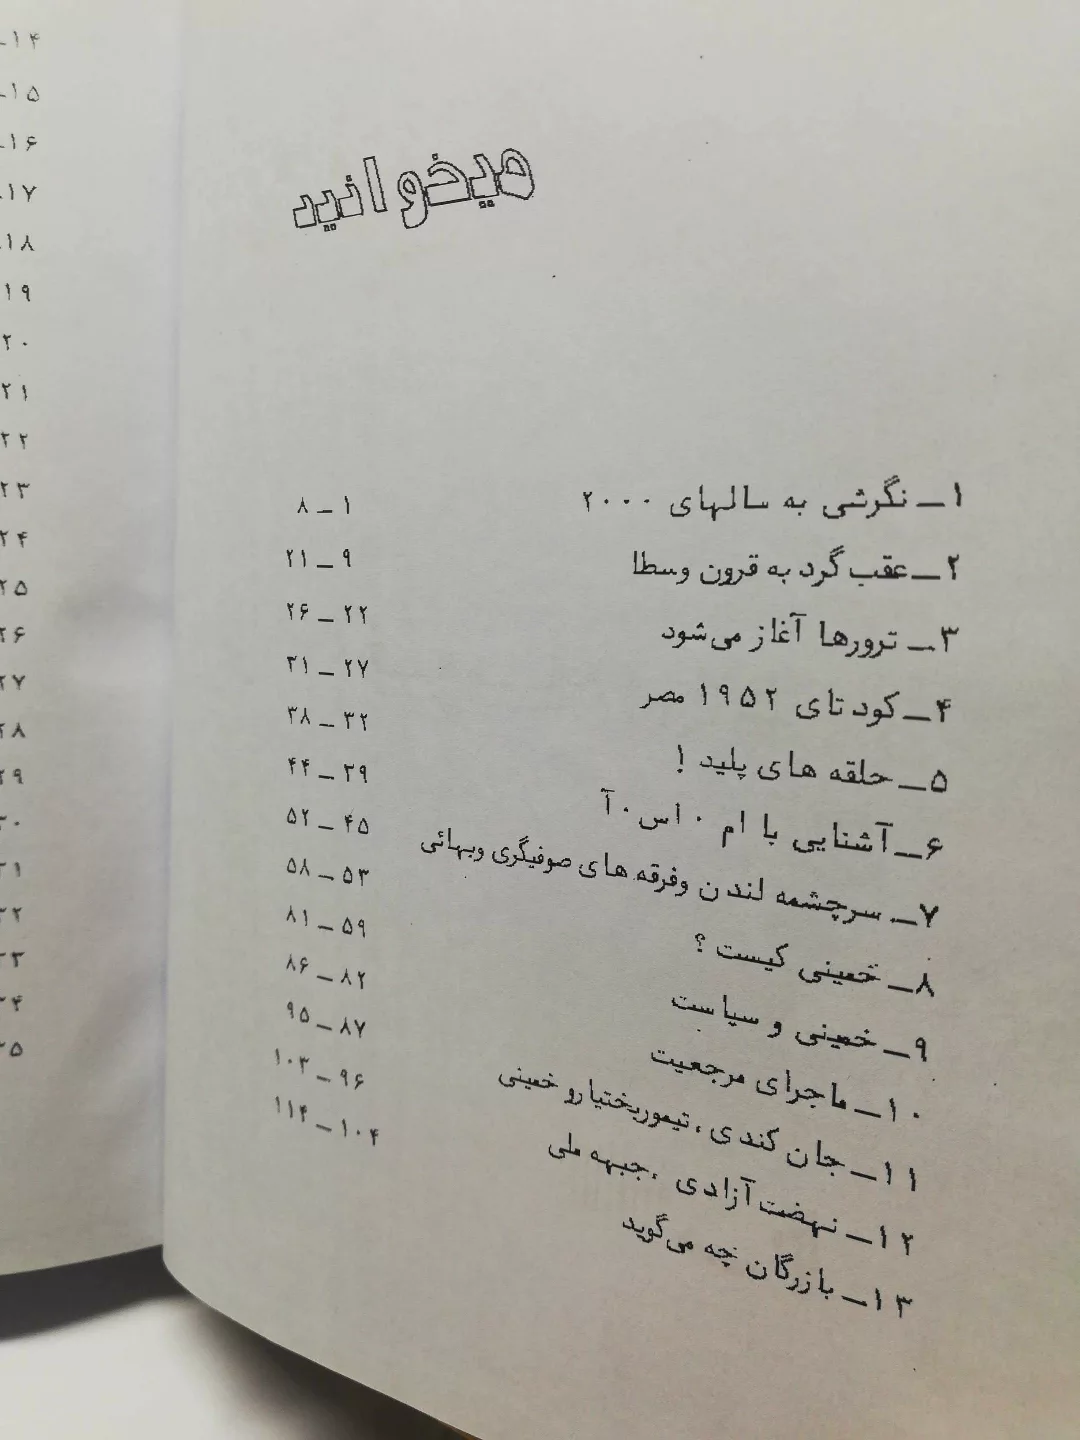 میخوانید
۱ـ نگرشی به سالهای ۲۰۰۰
۱ ـ ۸
۲ـ عقب گرد به قرون وسطا
۹ ـ ۲۱
۳ـ ترورها آغاز می‌شود
۲۲ ـ ۲۶
۴ـ کودتای ۱۹۵۲ مصر
۲۷ ـ ۳۱
۵ـ حلقه های پلید !
۳۲ ـ ۳۸
۶ـ آشنایی با ام ۰ اس ۰ آ
۳۹ ـ ۴۴
۷ـ سرچشمه لندن وفرقه های صوفیگری وبهائی
۴۵ ـ ۵۲
۸ـ خمینی کیست ؟
۵۳ ـ ۵۸
۹ـ خمینی و سیاست
۵۹ ـ ۸۱
۱۰ـ ماجرای مرجعیت
۸۲ ـ ۸۶
۱۱ـ جان کندی ، تیموربختیارو خمینی
۸۷ ـ ۹۵
۱۲ـ نهضت آزادی ، جبهه ملی
۹۶ ـ ۱۰۳
۱۳ـ بازرگان چه می‌گوید
۱۰۴ ـ ۱۱۴
۱۴ـ
۱۵ـ
۱۶ـ
۱۷ـ
۱۸ـ
۱۹
۲۰
۲۱
۲۲
۲۳
۲۴
۲۵
۲۶
۲۷
۲۸
۲۹
۳۰
۳۱
۳۲
۳۳
۳۴
۳۵